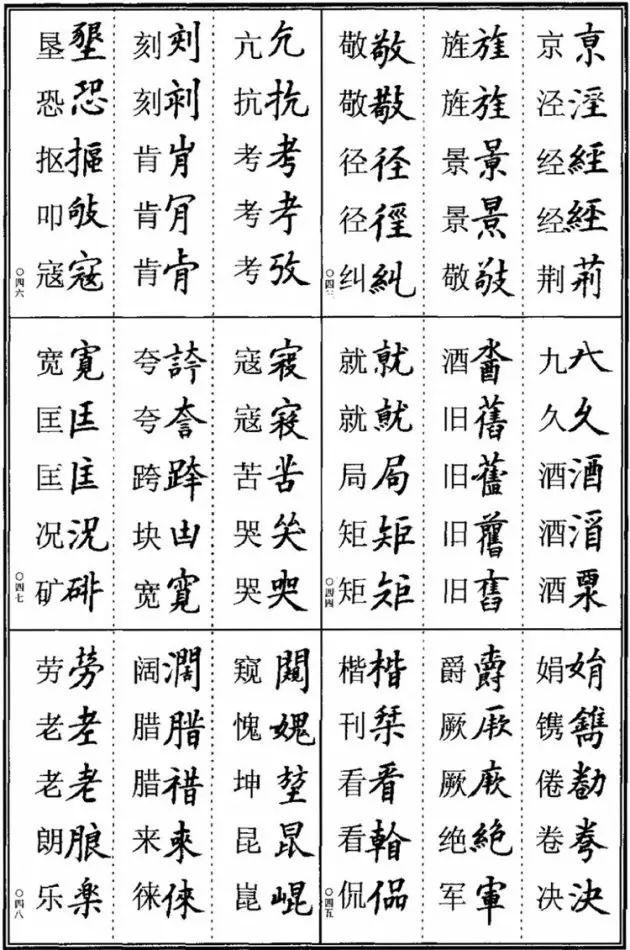 京亰 泾涇 经經 经經 荆荊
旌旌 旌旌 景景 景景 敬敬
敬敬 敬 径径 径徑 纠糾
〇四三
九 久久 酒酒 酒 酒
酒 旧舊 旧 旧 旧
就就 就 局局 矩矩 矩
〇四四
娟娟 镌鐫 倦勌 卷 决決
爵爵 厥 厥 绝絶 军軍
楷楷 刊栞 看看 看 侃偘
〇四五
亢 抗抗 考考 考 考攷
刻刻 刻 肯 肯 肯肯
垦墾 恐恐 抠摳 叩敂 寇寇
〇四六
寇 寇 苦苦 哭 哭
夸誇 夸 跨跨 块凷 宽寬
宽寬 匡匡 匡匡 况況 矿
〇四七
窥闚 愧媿 坤堃 昆昆 崑崐
阔濶 腊腊 腊 来來 徕倈
劳勞 老 老老 朗朖 乐楽
〇四八